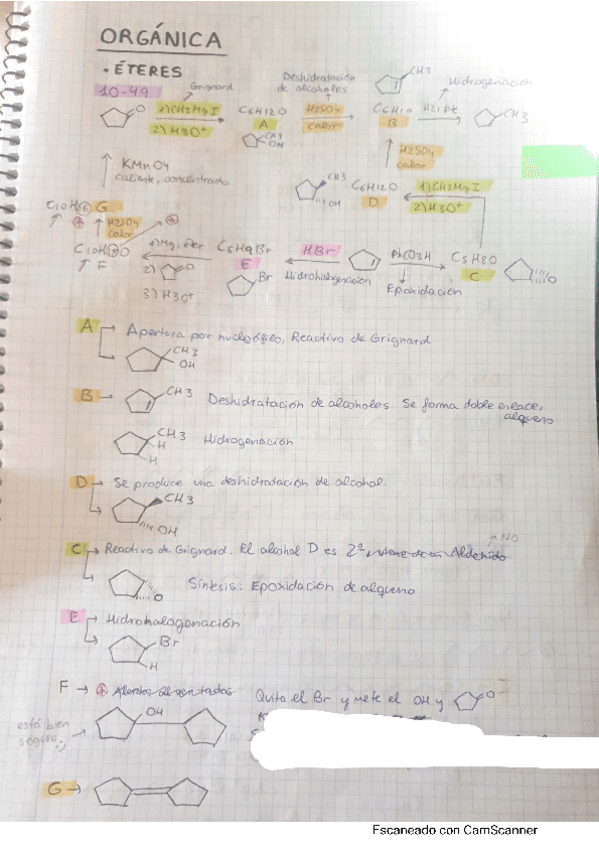 ORGÁNICA
• ÉTERES
10-49
Grignard
Deshidratación de alcoholes
Hidrogenación
CH3
O 1) CH3MgI C6H12O H2SO4 C6H10 H2, Pt CH3
2) H3O+ A calor B
CH3
OH
KMnO4
caliente, concentrado
H2SO4
calor
CH3
OH
C6H12O 1) CH3MgI
D 2) H3O+
C10H16 G
H2SO4
calor
C10H18O 1) Mg, éter C5H9Br HBr PhCO3H C5H8O
F 2) O E Hidrohalogenación Epoxidación C O
3) H3O+ Br
A → Apertura por nucleófilo, Reactivo de Grignard
CH3
OH
B → CH3 Deshidratación de alcoholes. Se forma doble enlace,
alqueno
CH3 Hidrogenación
H
H
D → Se produce una deshidratación de alcohol.
CH3
OH
NO
C → Reactivo de Grignard. El alcohol D es 2º viene de un Aldehído
O Síntesis: Epoxidación de alqueno
E → Hidrohalogenación
Br
H
F → Quita el Br y mete el OH y O
OH
está bien
seguro :)
G →
Escaneado con CamScanner